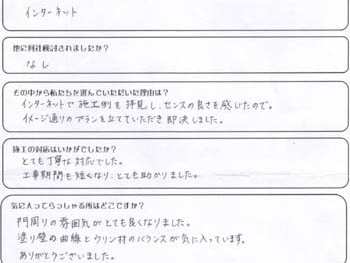 インターネット
他に何社検討されましたか？
なし
その中から私たちを選んでいただいた理由は？
インターネットで施工例を拝見し、センスの良さを感じたので。
イメージ通りのプランを立てていただき即決しました。
施工の対応はいかがでしたか？
とても丁寧な対応でした。
工事期間も短くなり、とても助かりました。
気に入ってらっしゃる所はどこですか？
門周りの雰囲気がとても良くなりました。
塗り壁の曲線とウリン材のバランスが気に入っています。
ありがとうございました。